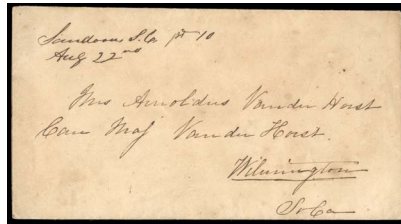 S.Ca pd 10
Aug 22nd
Mrs Arnoldus Vander Horst
Care Maj Vander Horst.
Wilmington
So Ca